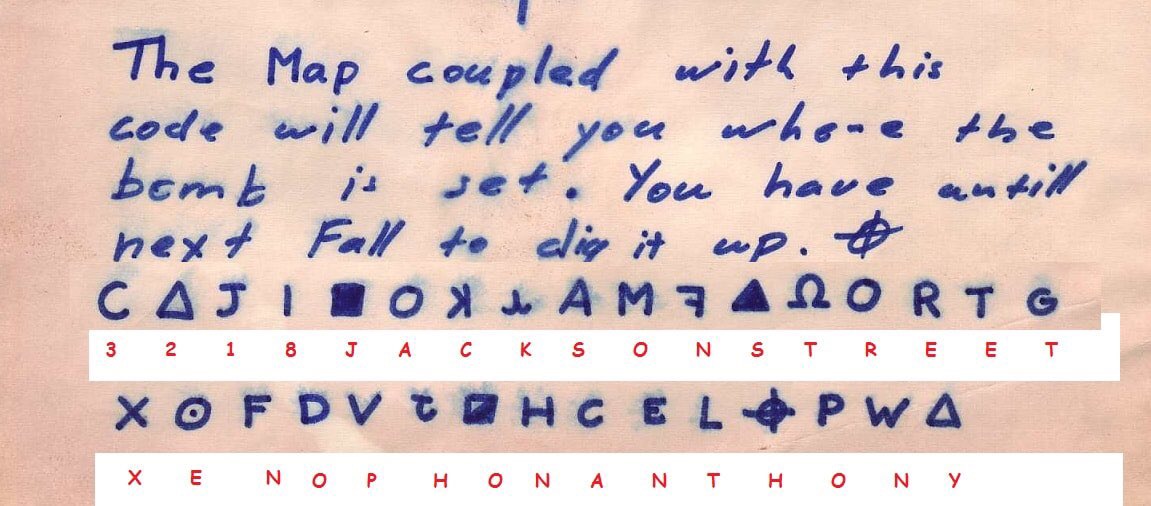 The Map coupled with this
code will tell you where the
bomb is set. You have untill
next Fall to dig it up. ⌖
C Δ J I ■ O ꓘ ⅄ A M ꟻ ▲ Ω O R T G
3 2 1 8 J A C K S O N S T R E E T
X ⊙ F D V Ʇ ◪ H C E L ⌖ P W Δ
X E N O P H O N A N T H O N Y